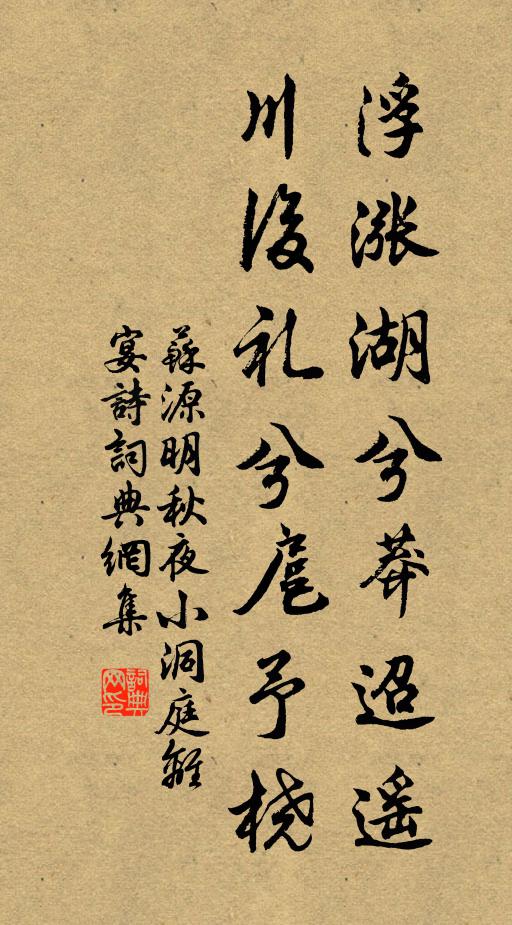 浮漲湖兮莽迢遥
川後礼兮扈予橈
蘇源明秋夜小洞庭離
宴詩詞典網集
詞典网印